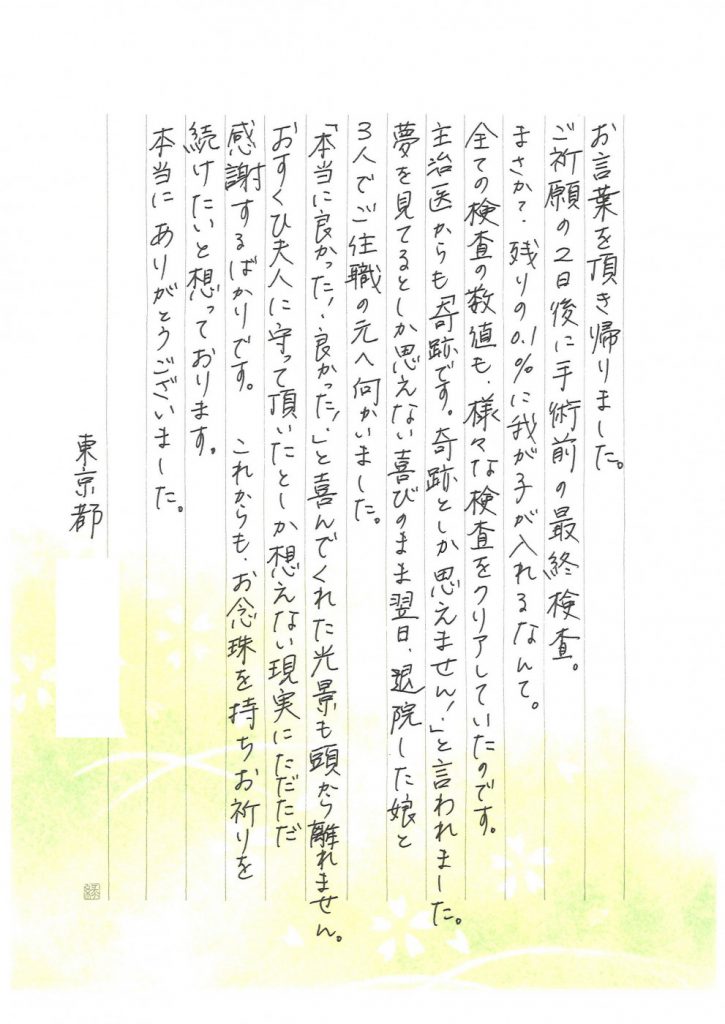 お言葉を頂き帰りました。
ご祈願の2日後に手術前の最終検査。
まさか?残りの0.1%に我が子が入れるなんて。
全ての検査の数値も、様々な検査をクリアしていたのです。
主治医からも「奇跡です。奇跡としか思えません!」と言われました。
夢を見てるとしか思えない喜びのまま翌日、退院した娘と
3人でご住職の元へ向かいました。
「本当に良かった!良かった!」と喜んでくれた光景も頭から離れません。
おすくひ夫人に守って頂いたとしか想えない現実にただただ
感謝するばかりです。 これからも、お念珠を持ちお祈りを
続けたいと想っております。
本当に ありがとうございました。
東京都